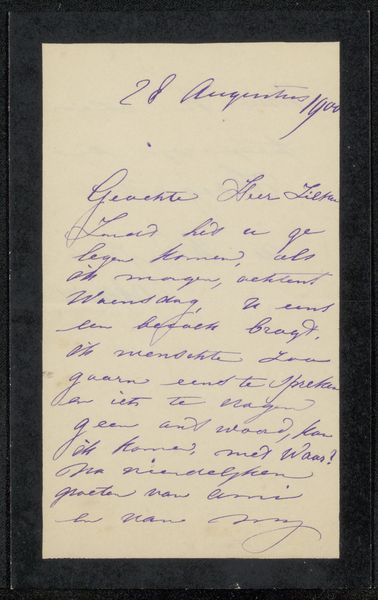 28 Augustus 1900
Geachte Heer Zilken
Zoud het u ge
legen komen, als
ik morgen, ochtent
Woensdag, u eens
een bezoek bragt,
ik menschte zoo
gaarn eens te spreken
en iets te vragen
geen and woord, kan
ik komen, niet Waar?
Na vriendelyken
groeten van Ami
en van my